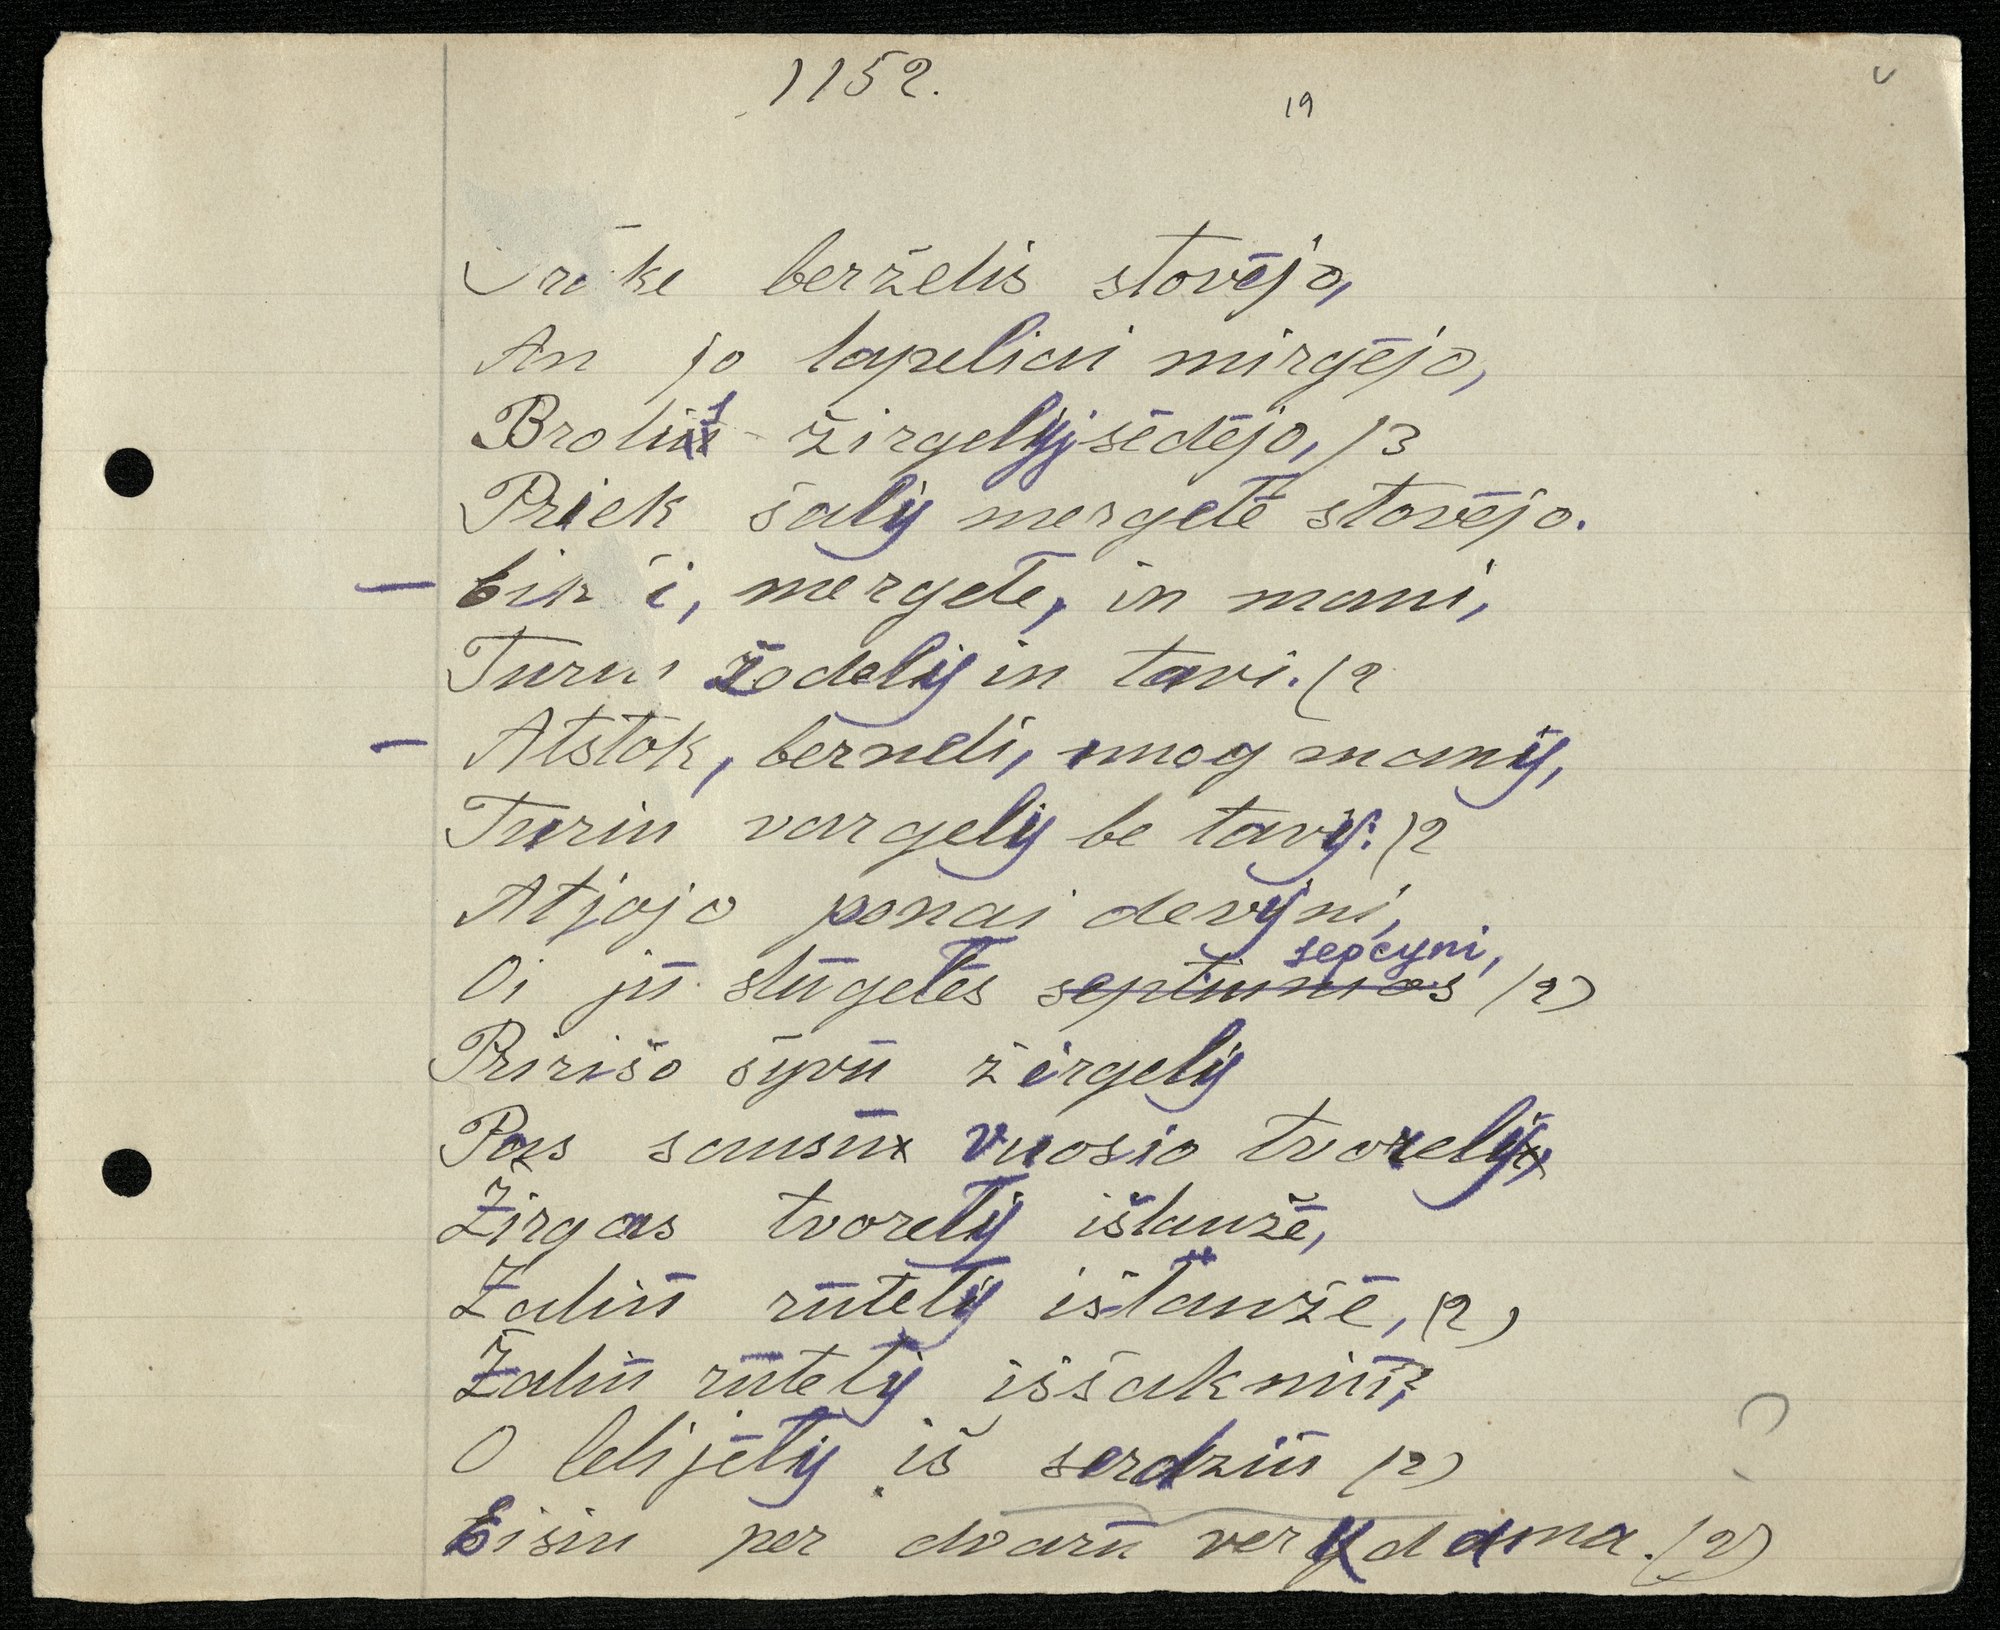 1152.
19
berželis stovėjo,
An jo lapeliai mirgėjo,
žirgelỹj sėdėjo, /3
Priek šalỹ mergelē stovėjo.
– mergele, in mani,
žodelỹ in tavi. (2
– Atstok, berneli, nuog manỹ,
Turiu vargelỹ be tavỹ. )2
Atjojo ponai devyni,
sepcyni,
Oi jū slūgelēs septinnios (2)
Pririšo šyvū žirgelỹ
Pas sausū vuosio tvorelỹ,
Žirgas tvorelỹ išlaužē,
Žaliū rūtelỹ išlaužē, (2)
Žaliū rūtelỹ iššakniū,
O lelijēlỹ iš serdziū (2)
Eisiu per dvarū verkdama. (2)